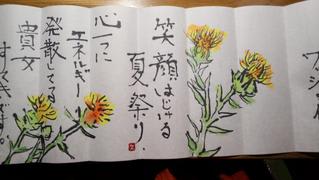 笑顔はじける
夏祭り、
心一つに
エネルギー
発散してる
貴女
すてきです。